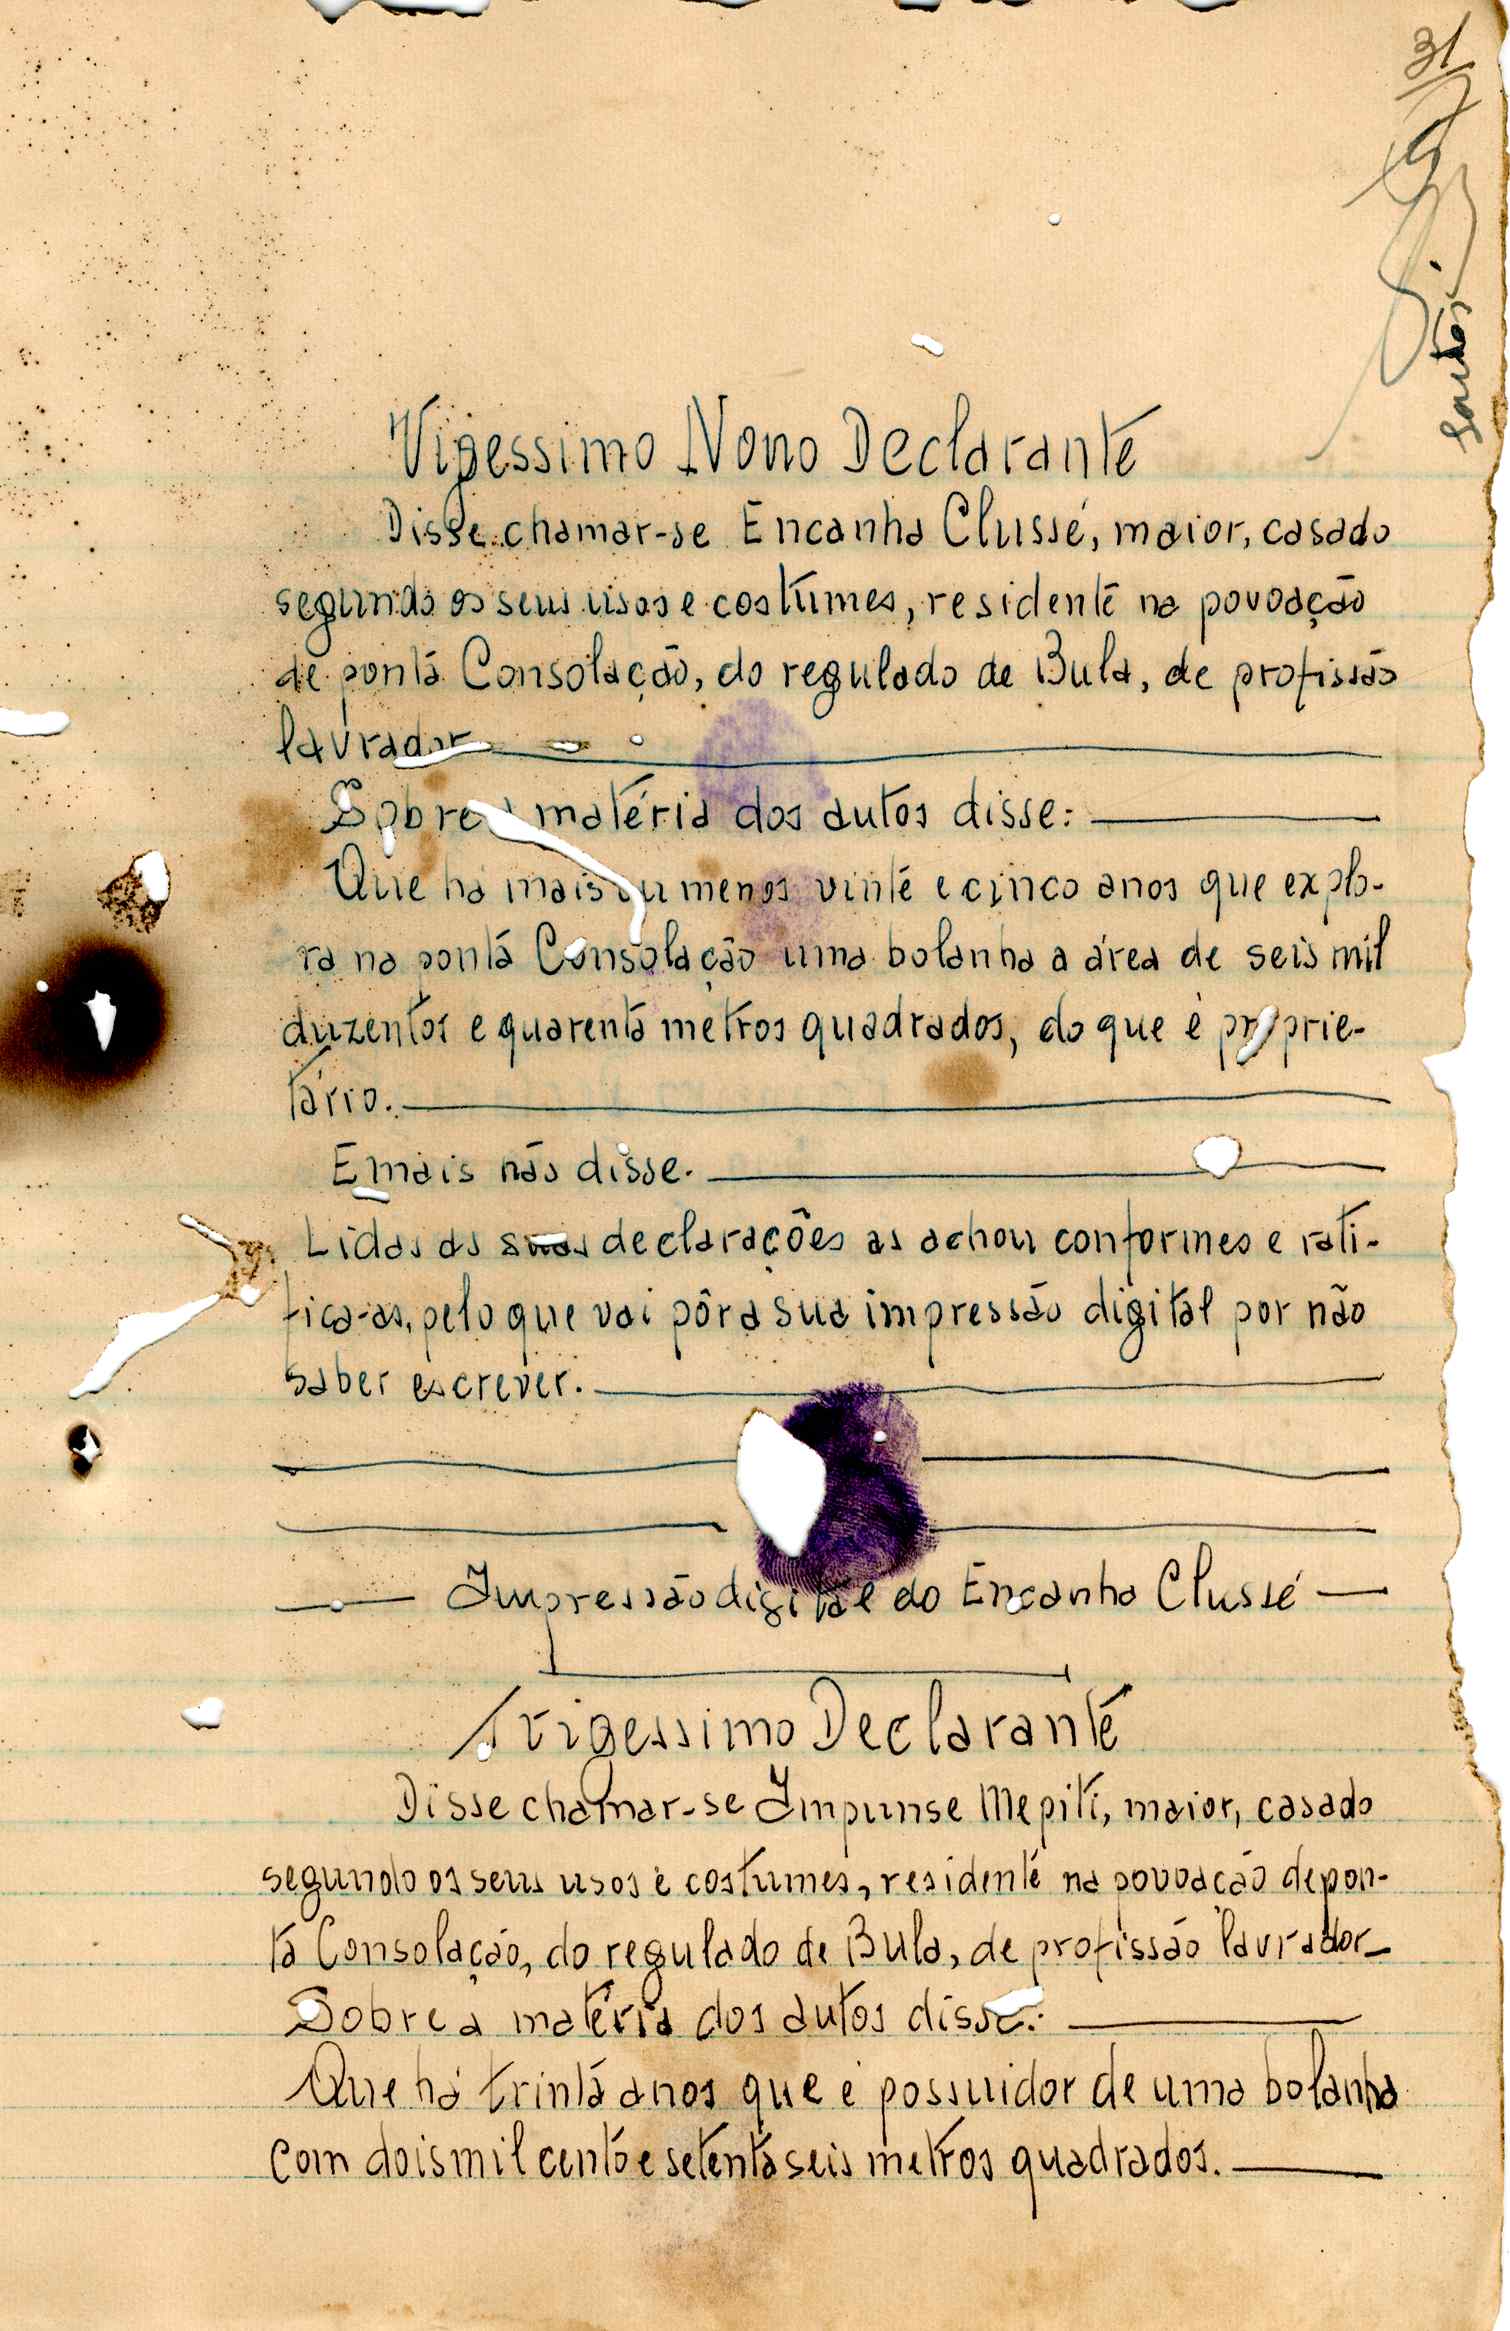 31
Santos
Vigessimo Nono Declarante
Disse chamar-se Encanha Clussé, maior, casado
segundo os seus usos e costumes, residente na povoação
de ponta Consolação, do regulado de Bula, de profissão
lavrador
Sobre a matéria dos autos disse:
Que há mais ou menos vinte e cinco anos que explo-
ra na ponta Consolação uma bolanha a área de seis mil
duzentos e quarenta metros quadrados, do que é proprie-
tário.
E mais não disse.
Lidas as suas declarações as achou conformes e rati-
fica-as, pelo que vai pôr a sua impressão digital por não
saber escrever.
Impressão digital do Encanha Clussé
Trigessimo Declarante
Disse chamar-se Impunse Mepiti, maior, casado
segundo os seus usos e costumes, residente na povoação de pon-
ta Consolação, do regulado de Bula, de profissão lavrador
Sobre a matéria dos autos disse:
Que há trinta anos que é possuidor de uma bolanha
com dois mil cento e setenta seis metros quadrados.